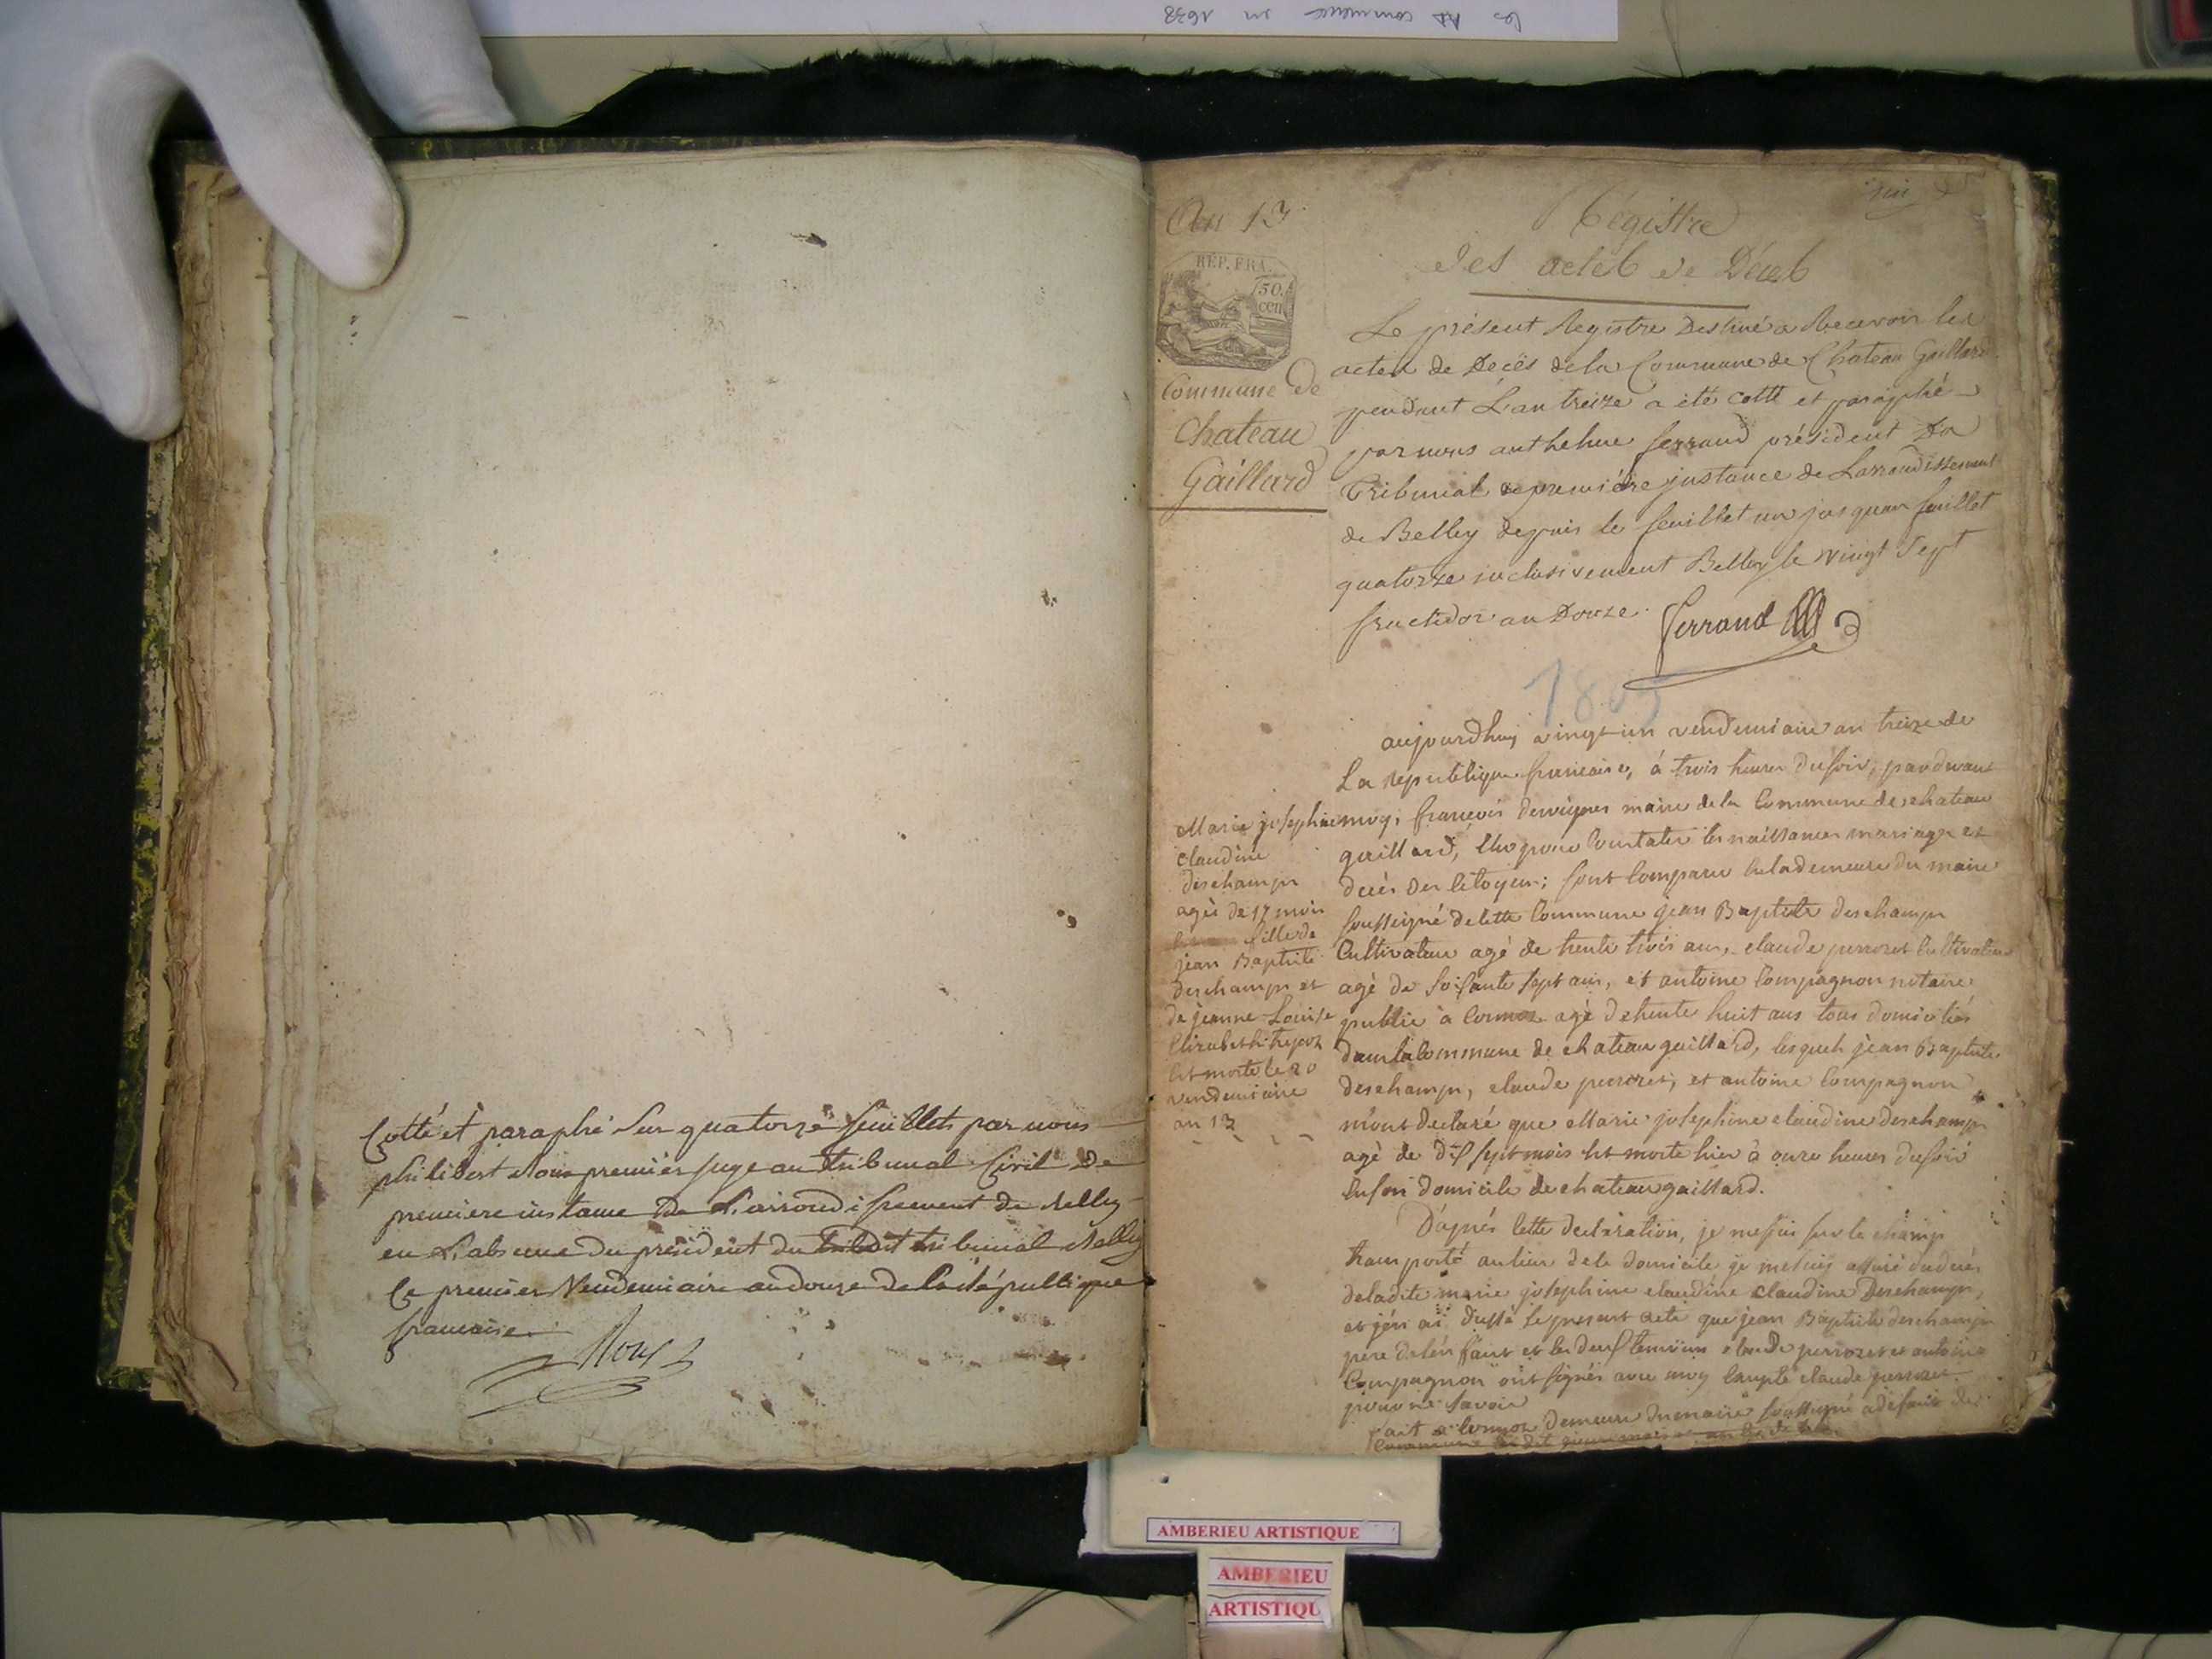 les commence en 1692
Cotté et paraphé Sur quatorze feuillets par nous
philibert premier juge au tribunal Civil de
premiere instance De L'arrondissement de Belley
en L'absence Du président du dit tribunal Belley
le premier Vendemiaire an douze de la République
francaise
An 13
REP. FRA.
50.
cen
Commune de
Chateau
Gaillard
Régistre
des actes de Décès
Le présent Registre Destiné a Recevoir les
actes de Decès de la Commune de Chateau Gaillard
pendant L'an treize a été cotté et paraphé
par nous anthelme ferrand président Du
Tribunal de première justance de Larrondissement
de Belley depuis le feuillet un jusquau feuillet
quatorze inclusivement Belley le vingt sept
fructidor an Douze. ferrand
1805
Marie josephine
claudine
deschamps
agée de 17 mois
fille de
jean Baptiste
deschamps et
de jeanne Louise
Elizabeth
est morte le 20
vendemiaire
an 13
aujourdhuy vingt un vendemiaire an treize de
La republique francaise, à trois heures du soir, pardevant
moy, francois dervignes maire de la Commune de chateau
gaillard, Elu pour Constater les naissances mariages et
decès des Citoyens; sont Comparu en la demeure du maire
soussigné de cette Commune jean Baptiste deschamps
Cultivateur agé de trente trois ans, claude perrozet Cultivateur
agé de soisante sept ans, et antoine Compagnon notaire
public à Cormoz agé de trente huit ans tous domiciliés
dans la Commune de chateau gaillard, lesquels jean Baptiste
deschamps, claude perrozet, et antoine Compagnon
m'ont declaré que Marie josephine claudine deschamps
agé de dis sept mois est morte hier à onze heures du soir
en son domicile de chateau gaillard.
D'après cette declaration, je me suis sur le champ
transporté au lieu de le domicile je me suis assuré du decès
de ladite marie josephine claudine claudine Deschamps,
et j'en ai dressé le present acte que jean Baptiste deschamps
pere de l'enfant et les deux temoins claude perrozet et antoine
Compagnon ont signés avec moy Excepté claude perrozet
pour ne savoir
fait a Cormoz demeure du maire soussigné a defaut de
AMBERIEU ARTISTIQUE
AMBERIEU
ARTISTIQU